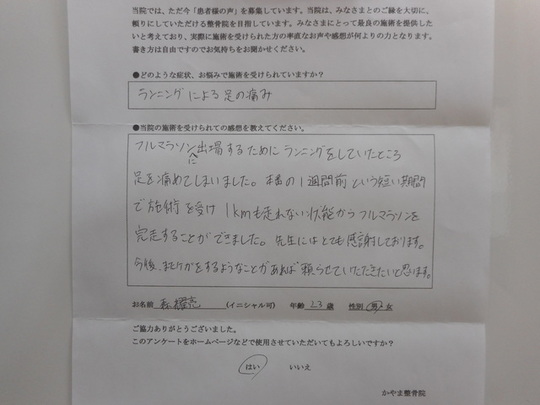 当院では、ただ今「患者様の声」を募集しています。当院は、みなさまとのご縁を大切に、
頼りにしていただける整骨院を目指しています。みなさまにとって最良の施術を提供した
いと考えており、実際に施術を受けられた方の率直なお声や感想が何よりの力となります。
書き方は自由ですのでお気持ちをお聞かせください。
●どのような症状、お悩みで施術を受けられていますか？
ランニングによる足の痛み
●当院の施術を受けられての感想を教えてください。
フルマラソンに出場するためにランニングをしていたところ
足を痛めてしまいました。本番の1週間前という短い期間
で施術を受け 1kmも走れない状態からフルマラソンを
完走することができました。先生にはとても感謝しております。
今後、またケガをするようなことがあれば頼らせていただきたいと思います。
お名前 (イニシャル可) 年齢 23 歳 性別 男・女
ご協力ありがとうございました。
このアンケートをホームページなどで使用させていただいてもよろしいですか？
はい いいえ
かやま整骨院